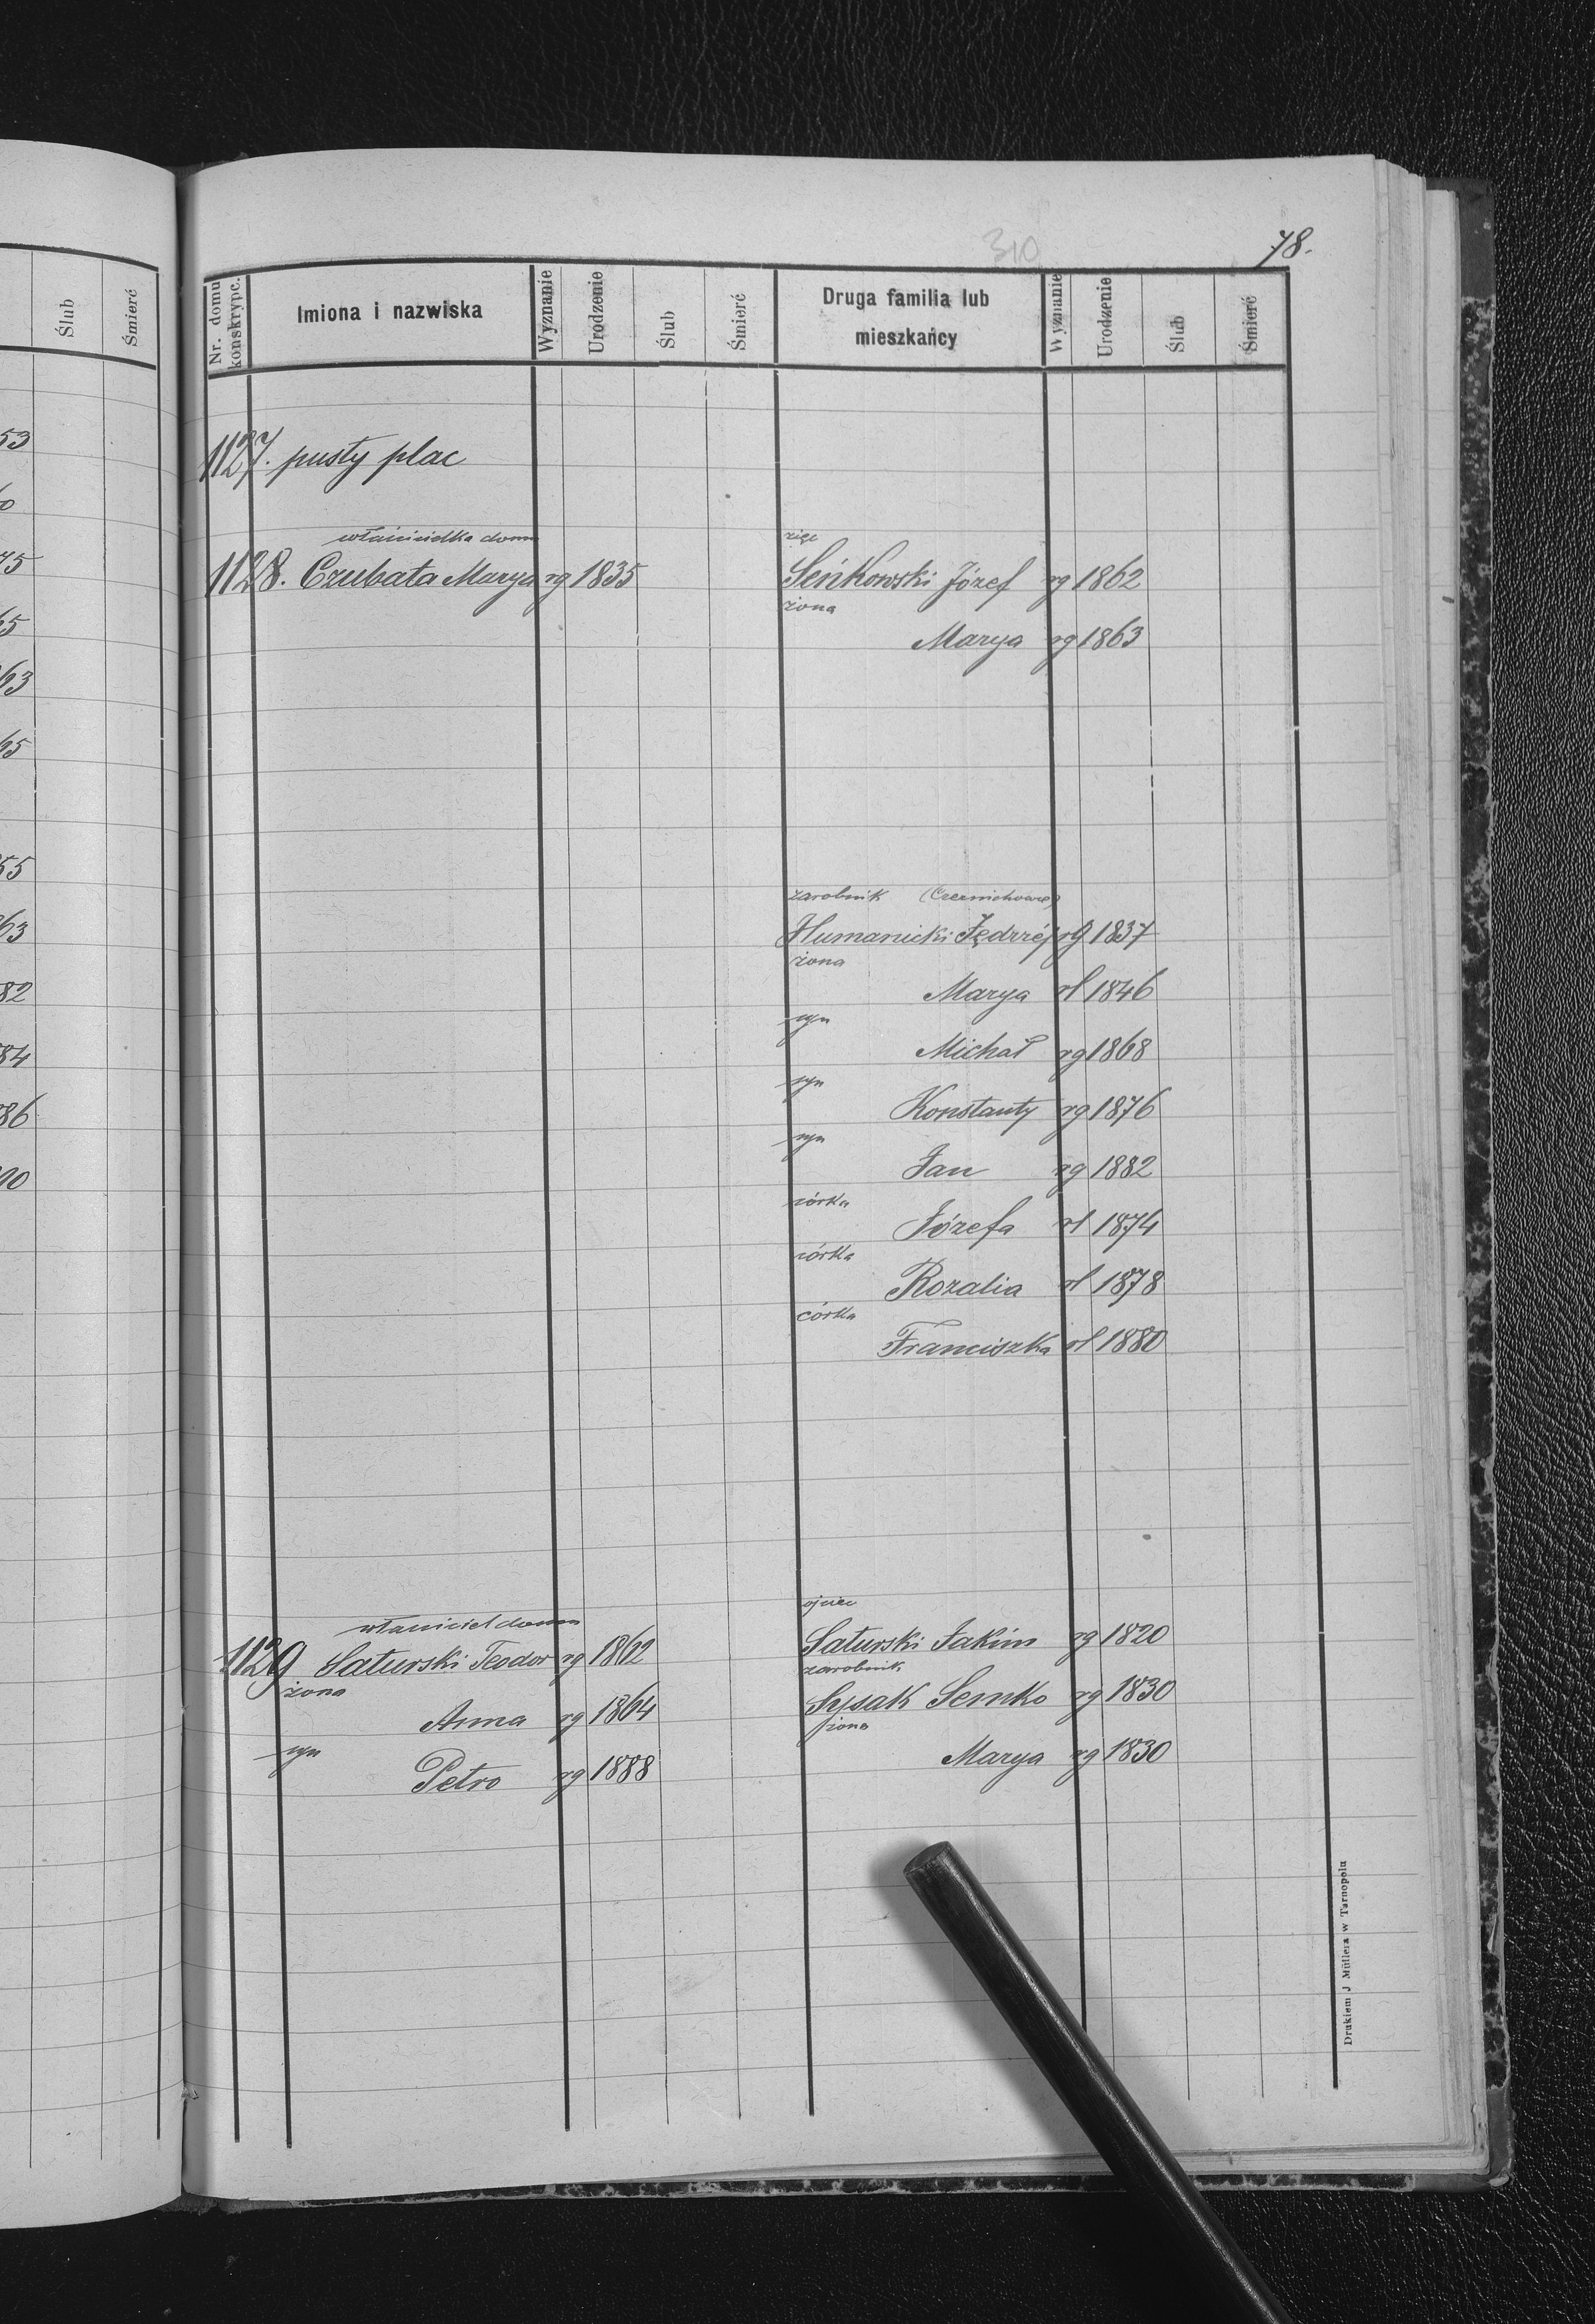 310
78.
Ślub
Śmierć
Nr. domu konskrypc.
Imiona i nazwiska
Wyznanie
Urodzenie
Ślub
Śmierć
Druga familia lub
mieszkańcy
Wyznanie
Urodzenie
Ślub
Śmierć
53
75
65
63
65
55
63
82
84
86
90
1127. pusty plac
właścicielka domu
1128. Czubata Marya rg 1835
zięc
Seńkowski Józef rg 1862
żona
Marya rg 1863
zarobnik (Czernichowce)
Humanicki Jędrzéj rg 1837
żona
Marya rł 1846
syn
Michał rg 1868
syn
Konstanty rg 1876
syn
Jan rg 1882
córka
Józefa rł 1874
córka
Rozalia rł 1878
córka
Franciszka rł 1880
właściciel domu
1129 Saturski Teodor rg 1862
żona
Anna rg 1864
syn
Petro rg 1888
ojciec
Saturski Jakim rg 1820
zarobnik
Sysak Semko rg 1830
żona
Marya rg 1830
Drukiem J Müllera w Tarnopolu